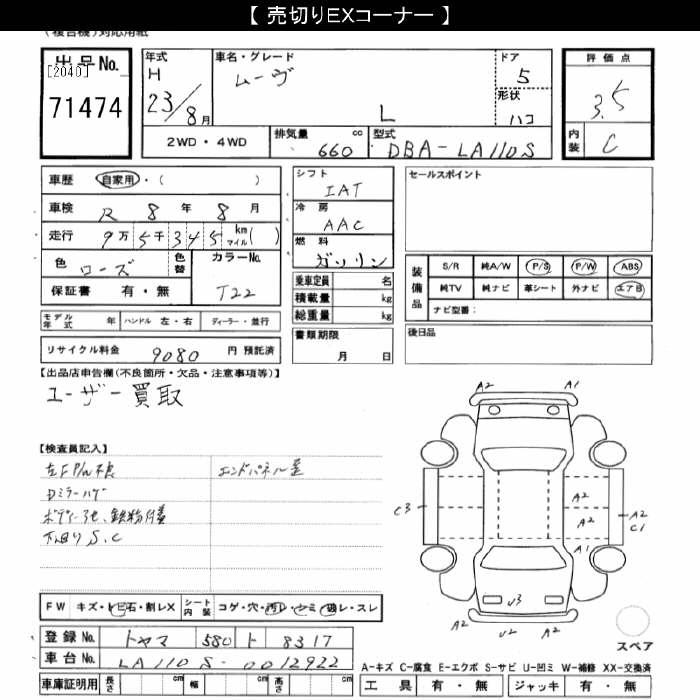 【 売切りEXコーナー 】
(複合機)対応用紙
出品No.
[2040]
71474
年式 H 23/8月
車名・グレード ムーヴ L
ドア 5
形状 ハコ
評価点 3.5
内装 C
2WD・4WD
排気量 660 cc
型式 DBA-LA110S
車歴 自家用・( )
車検 R 8年 8月
走行 9万5千345 km マイル( )
色 ローズ
色替
カラーNo. T22
保証書 有・無
シフト IAT
冷房 AAC
燃料 ガソリン
乗車定員 名
積載量 kg
総重量 kg
セールスポイント
装備品
S/R 純A/W P/S P/W ABS
純TV 純ナビ 革シート 外ナビ エアB
ナビ型番:
モデル年式 年
ハンドル 左・右
ディーラー・並行
書類期限 月 日
後日品
リサイクル料金 9080 円 預託済
【出品店申告欄(不良箇所・欠品・注意事項等)】
ユーザー買取
【検査員記入】
左F P/W不良
エンドパネル歪
Dミラーハゲ
ボディーアセ、鉄粉付着
下回りS.C
A2 A1
C3
A2
A2
A1
A2
C1
U3
A2 U2 A2
スペア
FW キズ・トビ石・割レX
シート内装 コゲ・穴・汚レ・シミ・破レ・スレ
登録No. トヤマ 580 ト 8317
車台No. LA110S-0012922
A-キズ C-腐食 E-エクボ S-サビ U-凹ミ W-補修 XX-交換済
車庫証明用 長さ cm 幅 cm 高さ cm
工具 有・無 ジャッキ 有・無